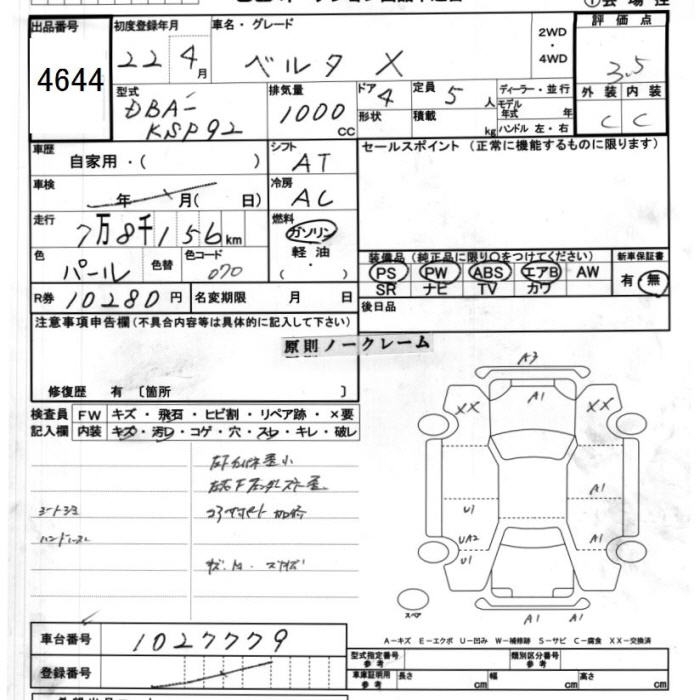 出品番号 初度登録年月 車名・グレード 2WD・4WD 評価点
4644 22 4月 ベルタ X 3.5
型式 排気量 ドア 4 定員 5人 ディーラー・並行 外装 内装
DBA- 1000 形状 積載 モデル年式 年 C C
KSP92 CC kg ハンドル 左・右
車歴 シフト セールスポイント (正常に機能するものに限ります)
自家用・( ) AT
車検 冷房
年 月( 日) AC
走行 燃料
7万8千156km ガソリン
色 色替 色コード 軽油 装備品 (純正品に限り○をつけてください) 新車保証書
パール 070 ・ PS PW ABS エアB AW 有・無
( ) SR ナビ TV カワ
R券 10280円 名変期限 月 日 後日品
注意事項申告欄 (不具合内容等は具体的に記入して下さい)
原則ノークレーム
修復歴 有 〔箇所 〕
検査員 FW キズ・飛石・ヒビ割・リペア跡・×要
記入欄 内装 キズ・汚レ・コゲ・穴・スレ・キレ・破レ
A3
A1
XX XX
A1
U1
UA2 A1
U1
スペア
A1 A1
A-キズ E-エクボ U-凹み W-補修跡 S-サビ C-腐食 XX-交換済
車台番号 1027779
型式指定番号 参考 類別区分番号 参考
登録番号
車庫証明用 参考 長さ cm 幅 cm 高さ cm